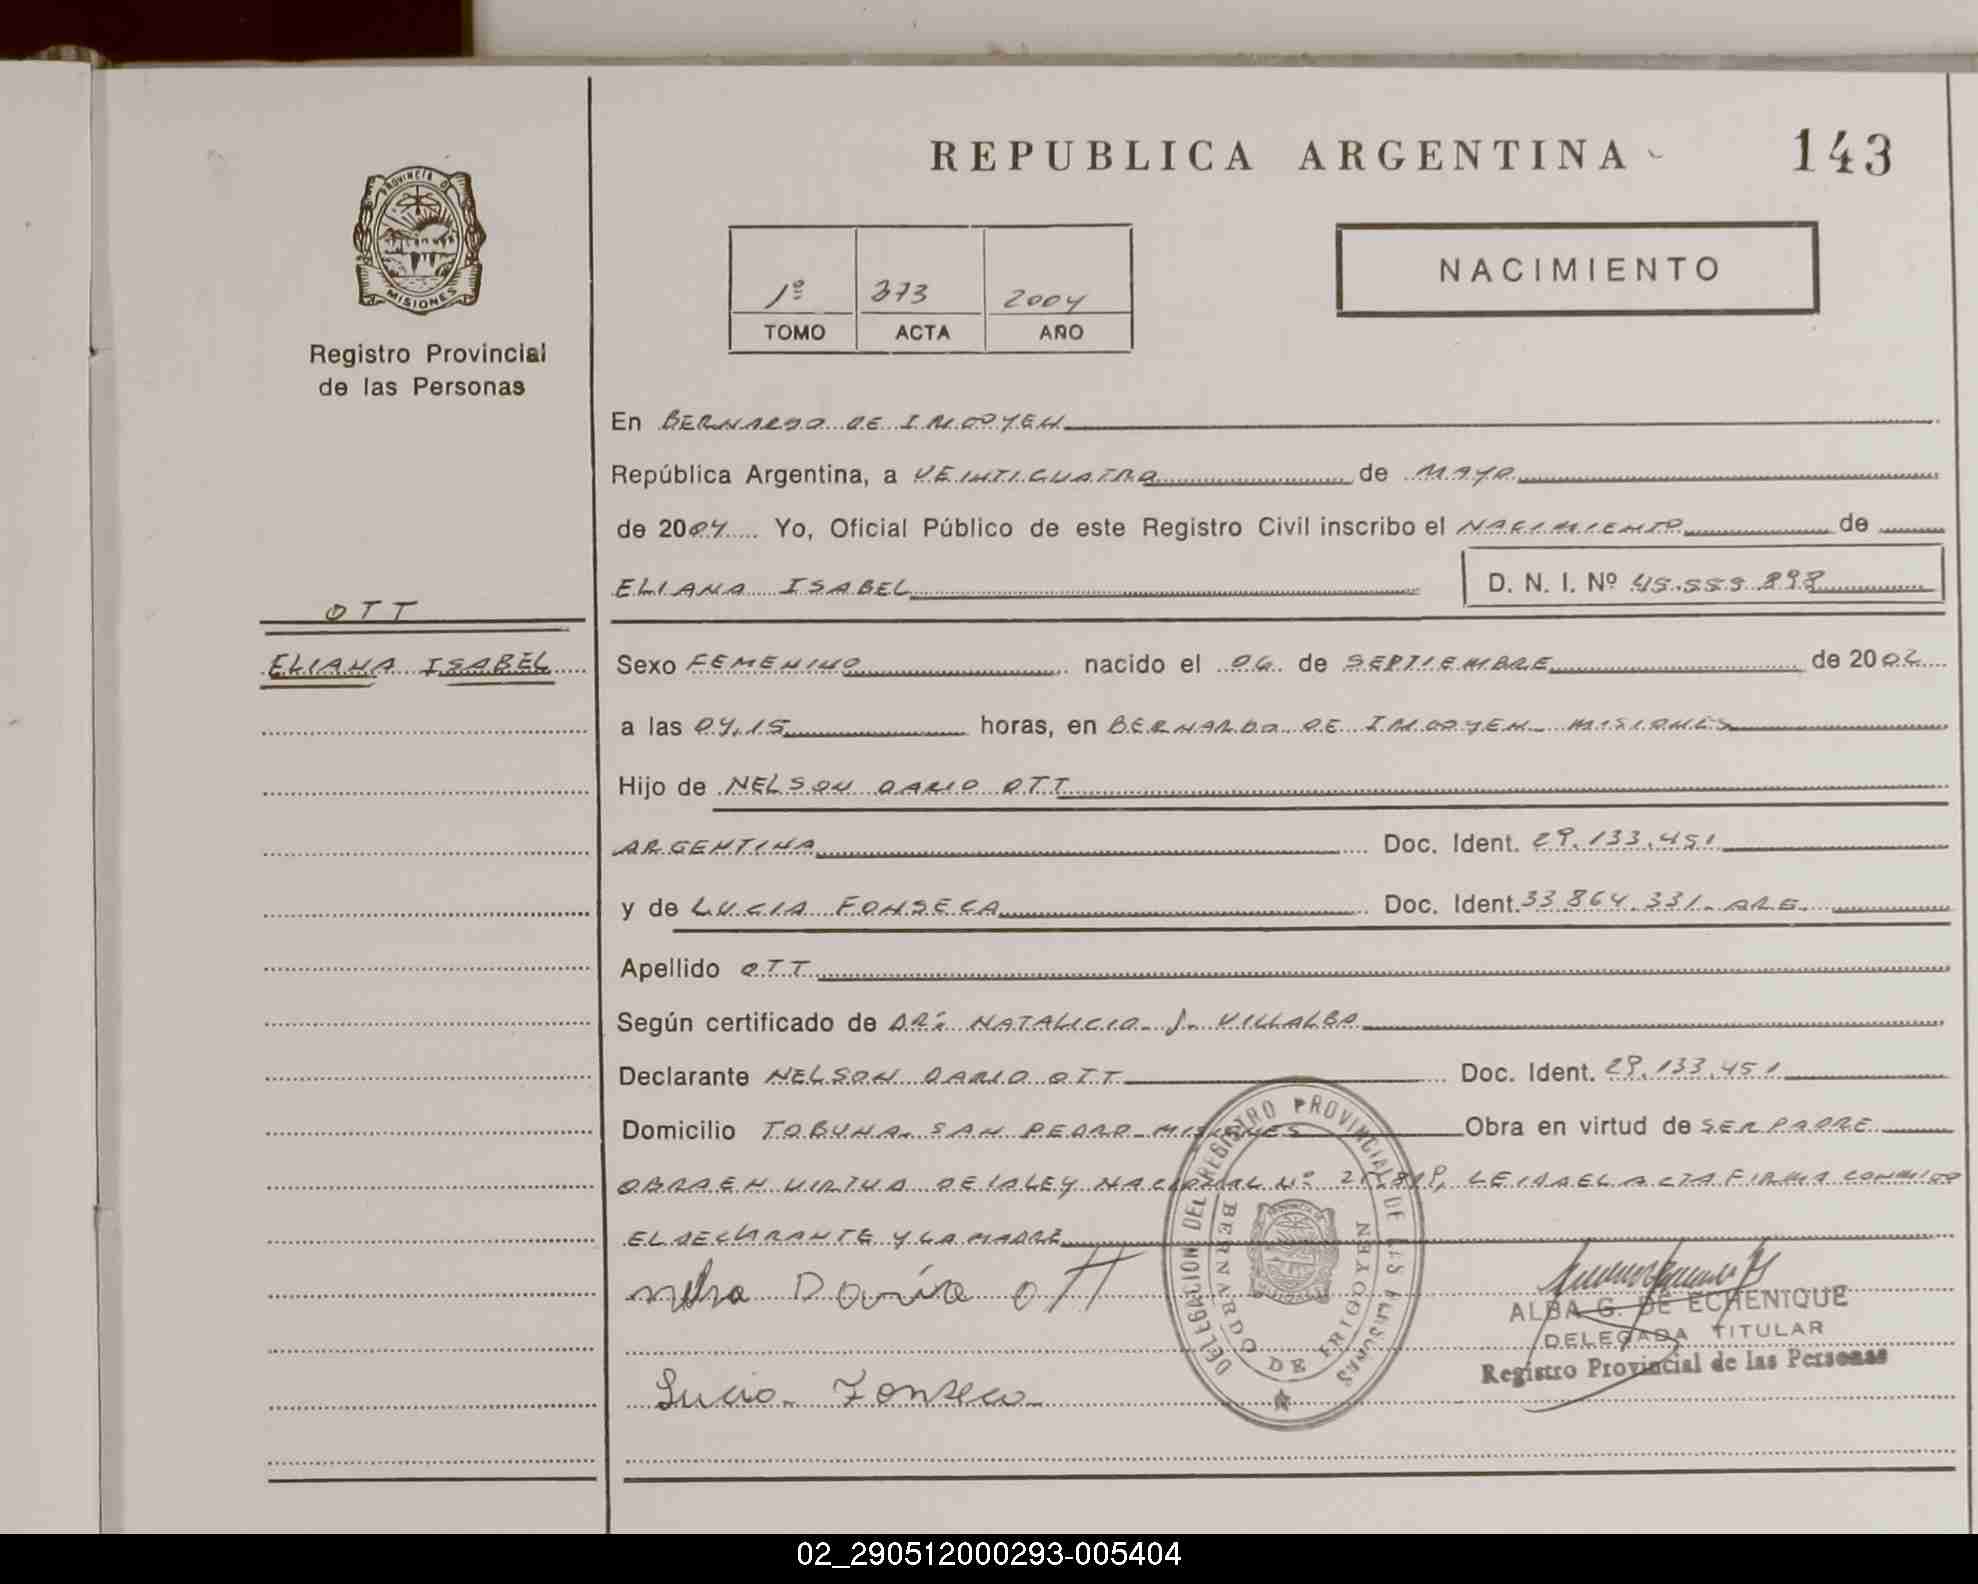 REPUBLICA ARGENTINA
143
PROVINCIA DE
MISIONES
Registro Provincial
de las Personas
1º 373 2004
TOMO ACTA AÑO
NACIMIENTO
En BERNARDO DE IRIGOYEN
República Argentina, a VEINTICUATRO de MAYO
de 2004 Yo, Oficial Público de este Registro Civil inscribo el NACIMIENTO de
ELIANA ISABEL D. N. I. Nº 45.559.898
OTT
ELIANA ISABEL
Sexo FEMENINO nacido el 06 de SEPTIEMBRE de 2002
a las 04,15 horas, en BERNARDO DE IRIGOYEN - MISIONES
Hijo de NELSON DARIO OTT
ARGENTINA Doc. Ident. 29.133.451
y de LUCIA FONSECA Doc. Ident. 33.864.331- ARG.
Apellido OTT
Según certificado de DR: NATALICIO J. VILLALBA
Declarante NELSON DARIO OTT Doc. Ident. 29.133.451
Domicilio TOBUNA- SAN PEDRO- MISIONES Obra en virtud de SER PADRE
OBRA EN VIRTUD DE LA LEY NACIONAL Nº LEIDA EL ACTA FIRMA CONMIGO
EL DECLARANTE Y LA MADRE
Dario OTT
Lucia Fonseca
DELEGACION DEL REGISTRO PROVINCIAL DE LAS PERSONAS
BERNARDO DE IRIGOYEN
ALBA G. DE ECHENIQUE
DELEGADA TITULAR
Registro Provincial de las Personas
02_290512000293-005404